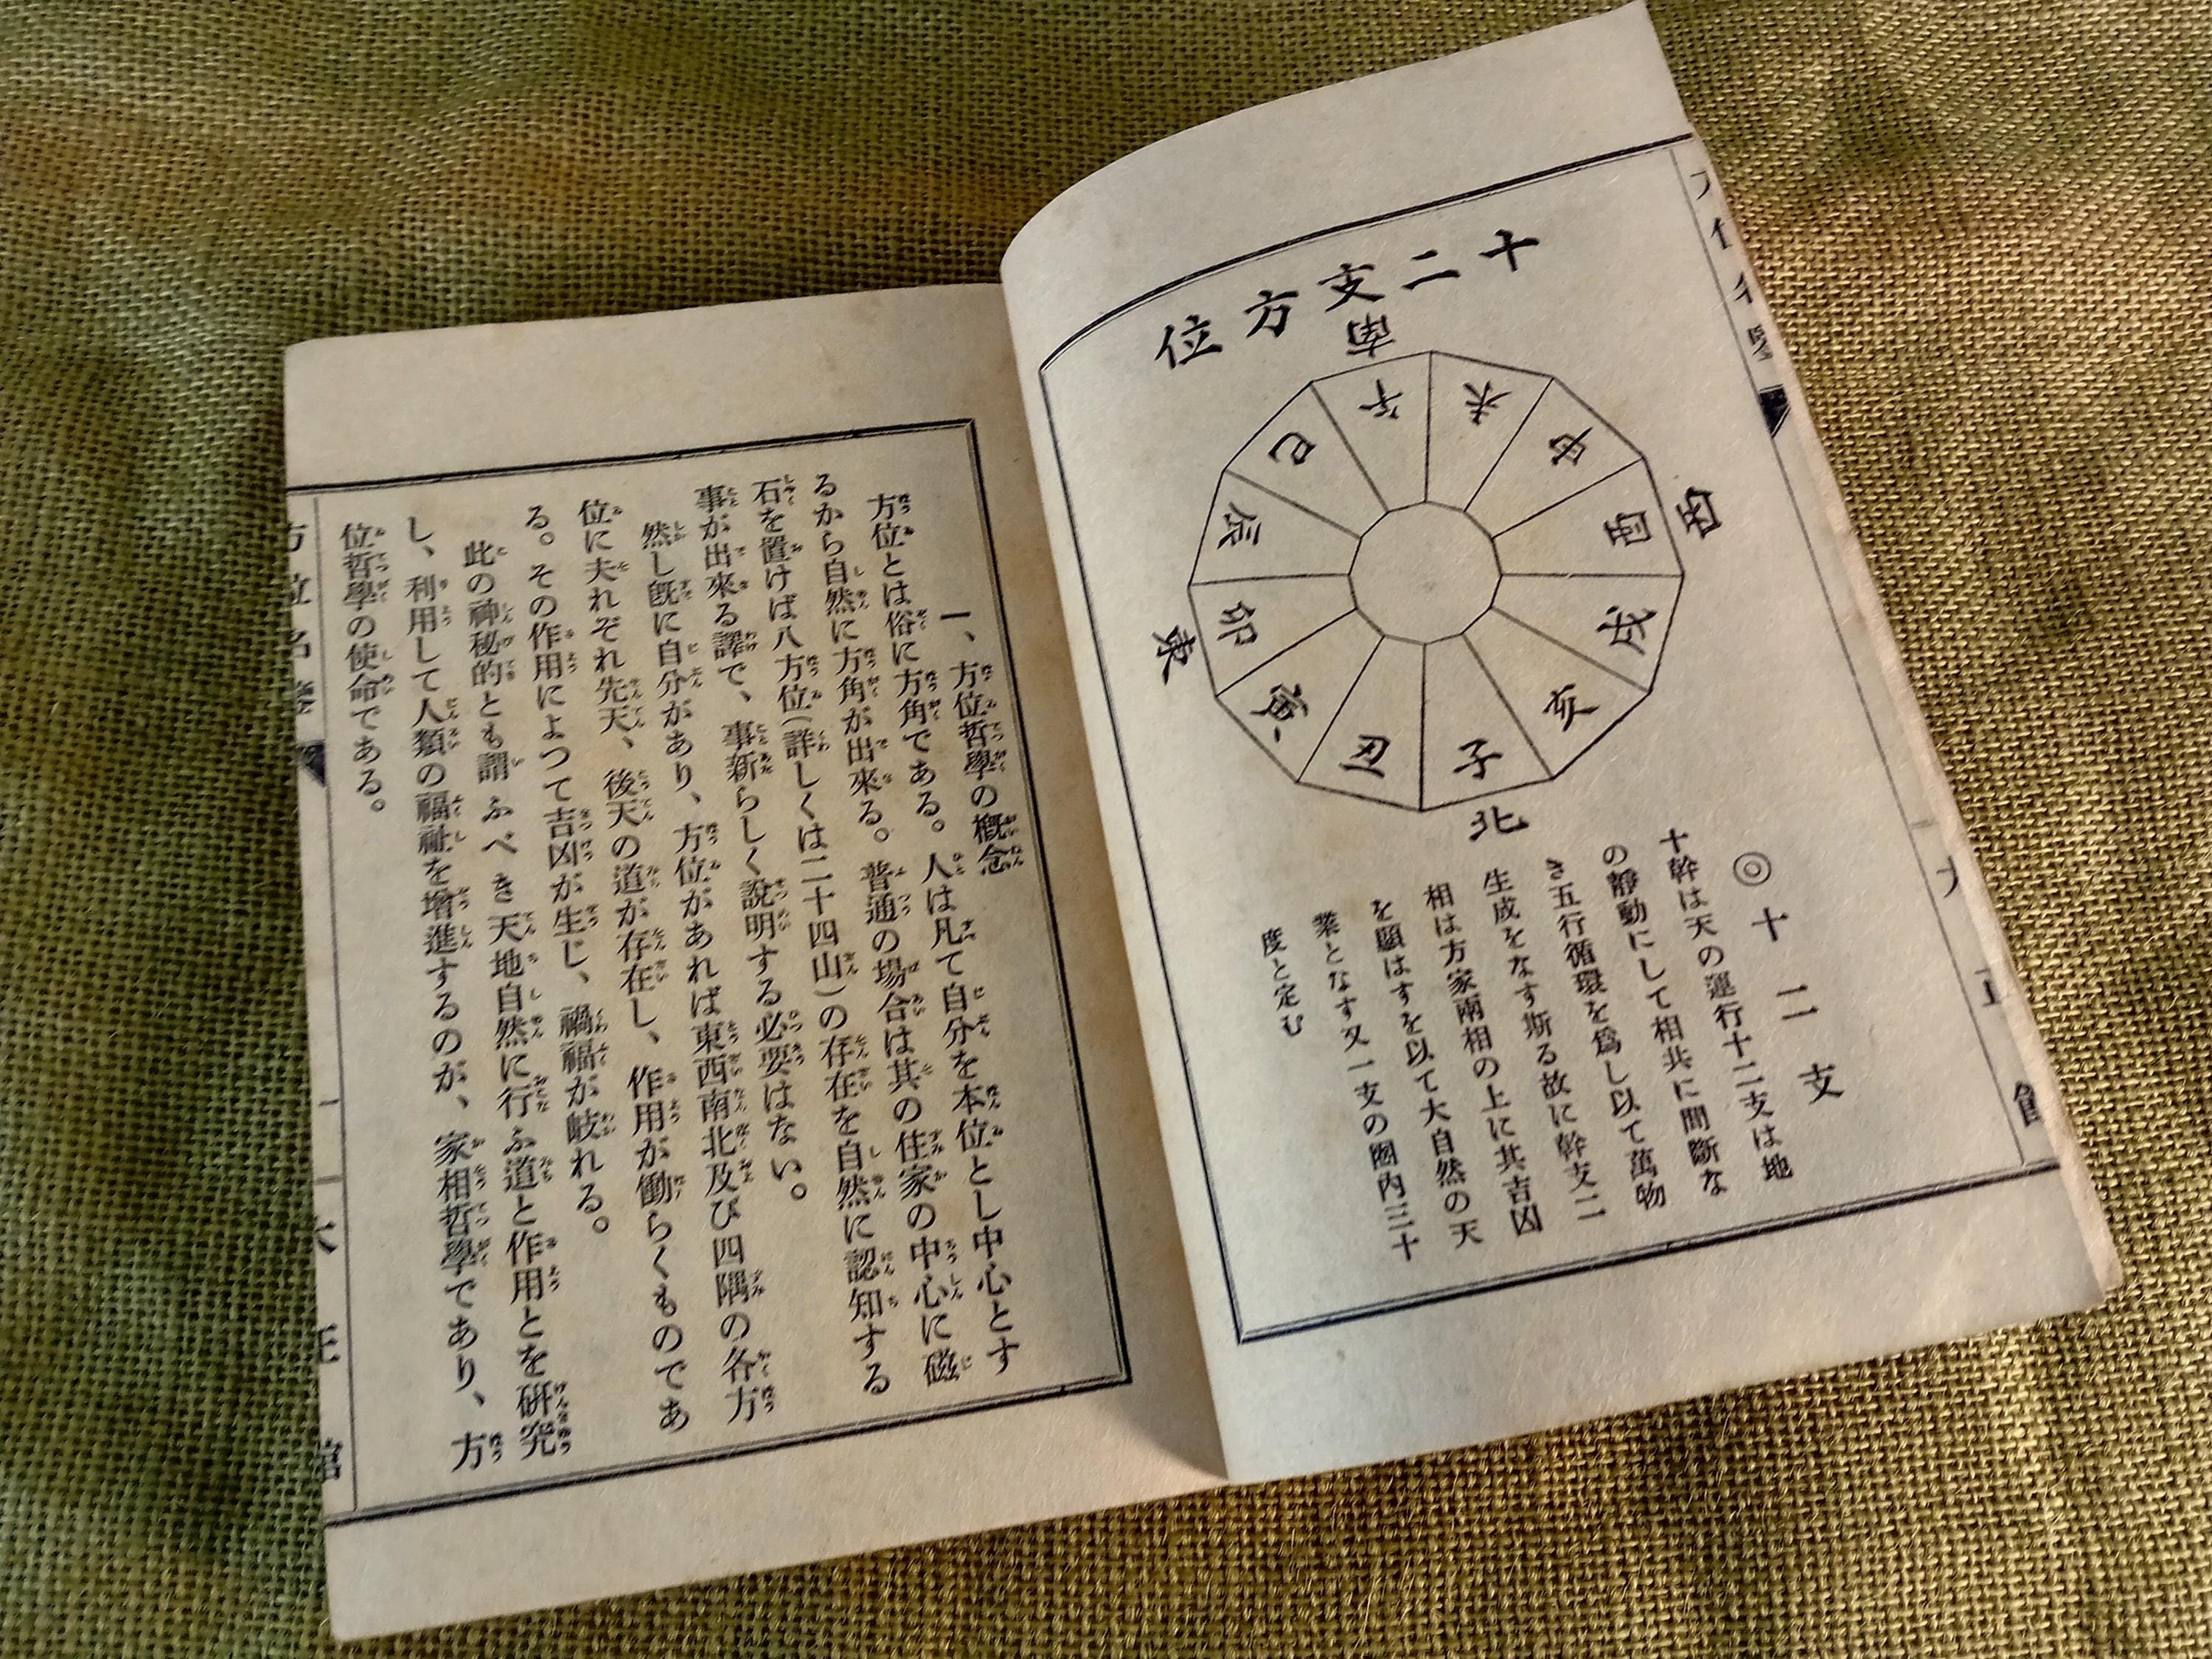 十二支方位
南
午
未
申
酉
西
戌
亥
子
北
丑
寅
卯
東
辰
巳
◎十二支
十幹は天の運行十二支は地
の靜動にして相共に間斷な
き五行循環を爲し以て萬物
生成をなす斯る故に幹支二
相は方家兩相の上に其吉凶
を顯はすを以て大自然の天
業となす又一支の圏內三十
度と定む
館
一、方位哲學の概念
方位とは俗に方角である。人は凡て自分を本位とし中心とす
るから自然に方角が出來る。普通の場合は其の住家の中心に磁
石を置けば八方位(詳しくは二十四山)の存在を自然に認知する
事が出來る譯で、事新らしく說明する必要はない。
然し既に自分があり、方位があれば東西南北及び四隅の各方
位に夫れぞれ先天、後天の道が存在し、作用が働らくものであ
る。その作用によつて吉凶が生じ、禍福が岐れる。
此の神秘的とも謂ふべき天地自然に行ふ道と作用とを硏究
し、利用して人類の福祉を增進するのが、家相哲學であり、方
位哲學の使命である。
一